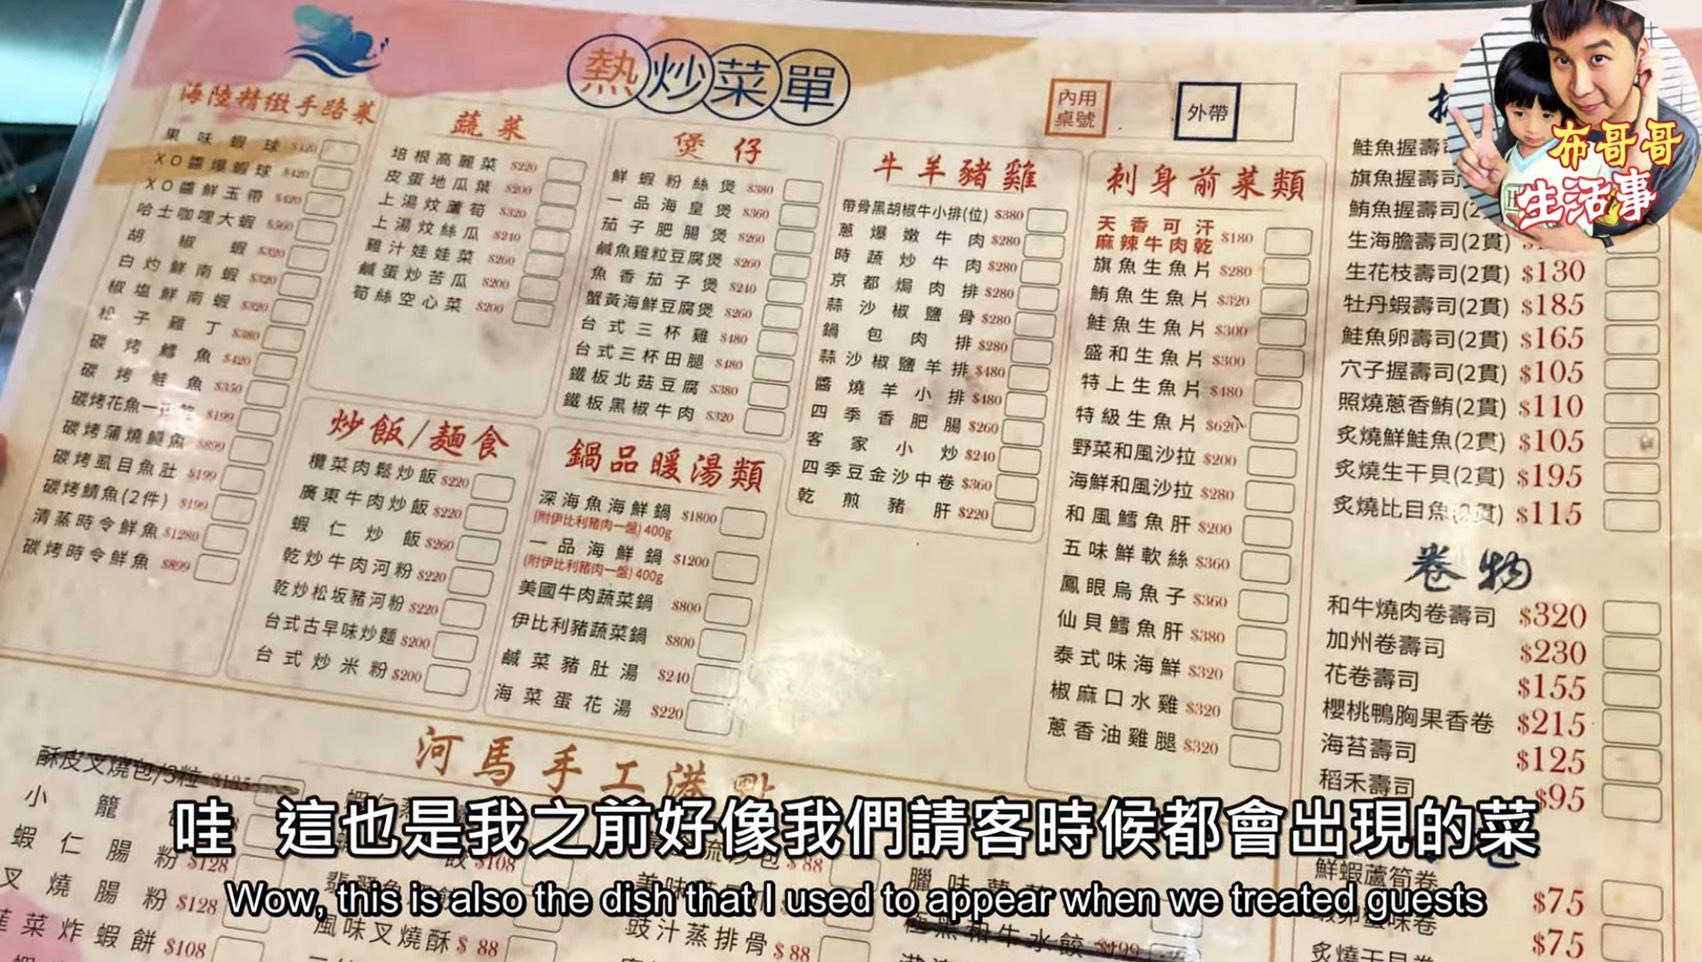 熱炒菜單
內用桌號
外帶
布哥哥
生活事
海陸精緻手路菜
果味蝦球 $320
XO醬爆蝦球 $420
XO醬鮮玉帶 $420
哈士咖哩大蝦 $560
胡椒蝦 $320
白灼鮮南蝦 $320
椒塩鮮南蝦 $320
松子雞丁 $380
碳烤鱈魚 $420
碳烤鮭魚 $350
碳烤花魚一 $199
碳烤蒲燒鰻魚 $899
碳烤虱目魚肚 $199
碳烤鯖魚(2件) $199
清蒸時令鮮魚 $1280
碳烤時令鮮魚 $899
蔬菜
培根高麗菜 $220
皮蛋地瓜葉 $200
上湯炆蘆筍 $320
上湯炆絲瓜 $240
雞汁娃娃菜 $260
鹹蛋炒苦瓜 $200
筍絲空心菜 $200
炒飯/麵食
欖菜肉鬆炒飯 $220
廣東牛肉炒飯 $220
蝦仁炒飯 $260
乾炒牛肉河粉 $220
乾炒松坂豬河粉 $220
台式古早味炒麵 $200
台式炒米粉 $200
煲仔
鮮蝦粉絲煲 $380
一品海皇煲 $360
茄子肥腸煲 $260
鹹魚雞粒豆腐煲 $260
魚香茄子煲 $240
蟹黃海鮮豆腐煲 $260
台式三杯雞 $480
台式三杯田腿 $480
鐵板北菇豆腐 $380
鐵板黑椒牛肉 $320
鍋品暖湯類
深海魚海鮮鍋 $1800
(附伊比利豬肉一盤) 400g
一品海鮮鍋 $1200
(附伊比利豬肉一盤) 400g
美國牛肉蔬菜鍋 $800
伊比利豬蔬菜鍋 $800
鹹菜豬肚湯 $240
海菜蛋花湯 $220
牛羊豬雞
帶骨黑胡椒牛小排(位) $380
蔥爆嫩牛肉 $280
時蔬炒牛肉 $280
京都焗肉排 $280
蒜沙椒鹽骨 $280
鍋包肉排 $280
蒜沙椒鹽羊排 $480
醬燒羊小排 $480
四季香肥腸 $260
客家小炒 $240
四季豆金沙中卷 $360
乾煎豬肝 $220
刺身前菜類
天香可汗
麻辣牛肉乾 $180
旗魚生魚片 $280
鮪魚生魚片 $320
鮭魚生魚片 $300
盛和生魚片 $300
特上生魚片 $480
特級生魚片 $620
野菜和風沙拉 $200
海鮮和風沙拉 $280
和風鱈魚肝 $200
五味鮮軟絲 $360
鳳眼烏魚子 $360
仙貝鱈魚肝 $380
泰式味海鮮 $320
椒麻口水雞 $320
蔥香油雞腿 $320
鮭魚握壽司
旗魚握壽司
鮪魚握壽司(2
生海膽壽司(2貫)
生花枝壽司(2貫) $130
牡丹蝦壽司(2貫) $185
鮭魚卵壽司(2貫) $165
穴子握壽司(2貫) $105
照燒蔥香鮪(2貫) $110
炙燒鮮鮭魚(2貫) $105
炙燒生干貝(2貫) $195
炙燒比目魚(2貫) $115
卷物
和牛燒肉卷壽司 $320
加州卷壽司 $230
花卷壽司 $155
櫻桃鴨胸果香卷 $215
海苔壽司 $125
稻禾壽司 $95
鮮蝦蘆筍卷 $75
味卷 $75
炙燒干貝卷
河馬手工港點
酥皮叉燒包/3粒 $135
小籠
蝦仁腸粉 $128
叉燒腸粉 $128
韮菜炸蝦餅 $108
$108
風味叉燒酥 $88
$88
豉汁蒸排骨 $88
和牛水餃 $199
哇 這也是我之前好像我們請客時候都會出現的菜
Wow, this is also the dish that I used to appear when we treated guests